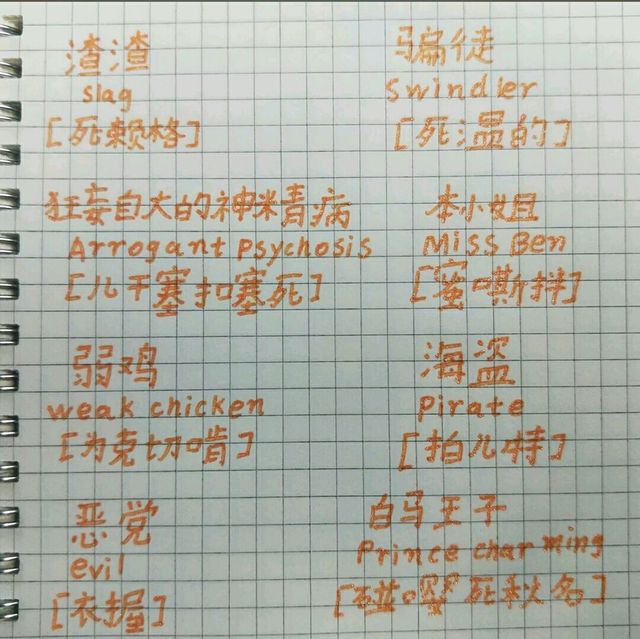 渣渣
slag
[死赖格]
骗徒
Swindler
[死温的]
狂妄自大的神咪青病
Arrogant psychosis
[儿干塞扣塞死]
本小姐
Miss Ben
[蜜嘶拌]
弱鸡
weak chicken
[为克切啃]
海盗
pirate
[拍儿特]
恶党
evil
[衣握]
白马王子
Prince charming
[碰婴死秋名]